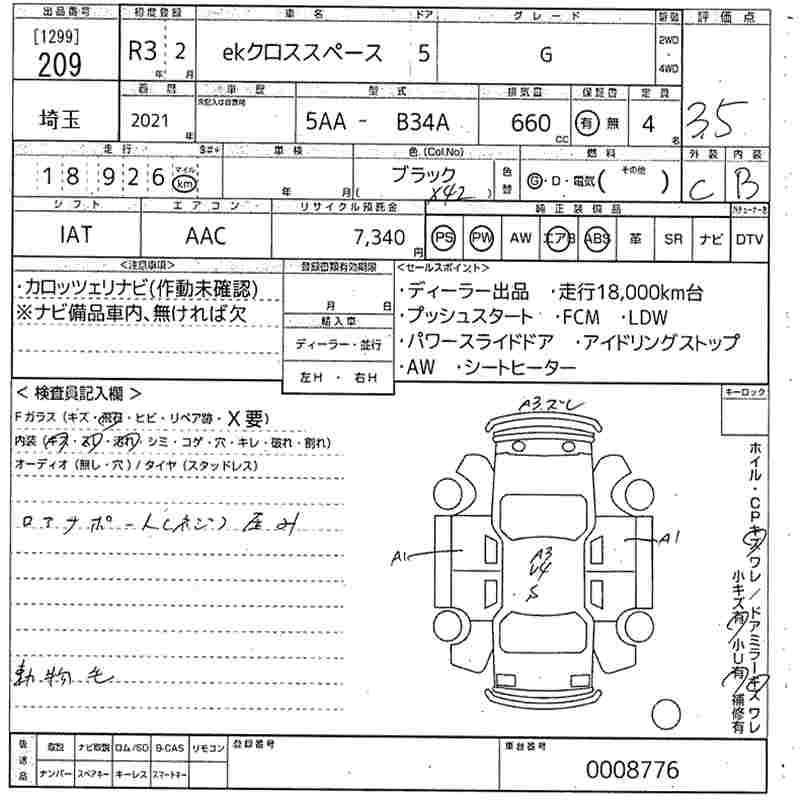 出品番号 初度登録 車名 ドア グレード 評価点
[1299]
209 R3年 2月 ekクロススペース 5 G 2WD・4WD
西暦 車歴 型式 排気量 保証書 定員
埼玉 2021年 5AA - B34A 660cc 有 無 4名 3.5
走行 車検 色(Col.No) 燃料 外装 内装
18926 マイル km 年 月 ブラック ( X42 ) 色替 G・D・電気( その他 ) C B
シフト エアコン リサイクル預託金 純正装備品
IAT AAC 7,340円 PS PW AW エアB ABS 革 SR ナビ DTV
<注意事項> 登録書類有効期限 <セールスポイント>
・カロッツェリナビ(作動未確認) 月 日 ・ディーラー出品 ・走行18,000km台
※ナビ備品車内、無ければ欠 輸入車 ・プッシュスタート ・FCM ・LDW
ディーラー・並行 ・パワースライドドア ・アイドリングストップ
左H ・ 右H ・AW ・シートヒーター
<検査員記入欄> キーロック
Fガラス(キズ・飛石・ヒビ・リペア跡・X要)
内装(キズ・汚れ・シミ・コゲ・穴・キレ・破れ・割れ)
オーディオ(無し・穴)/タイヤ(スタッドレス)
A1 A1
A3
U4
S
動物毛
ホイル・CPキズワレ/ドアミラーキズワレ
小キズ有 小U有 補修有
後送品 取説 ナビ取説 ロム/SD B-CAS リモコン 登録番号 車台番号
ナンバー スペアキー キーレス スマートキー 0008776